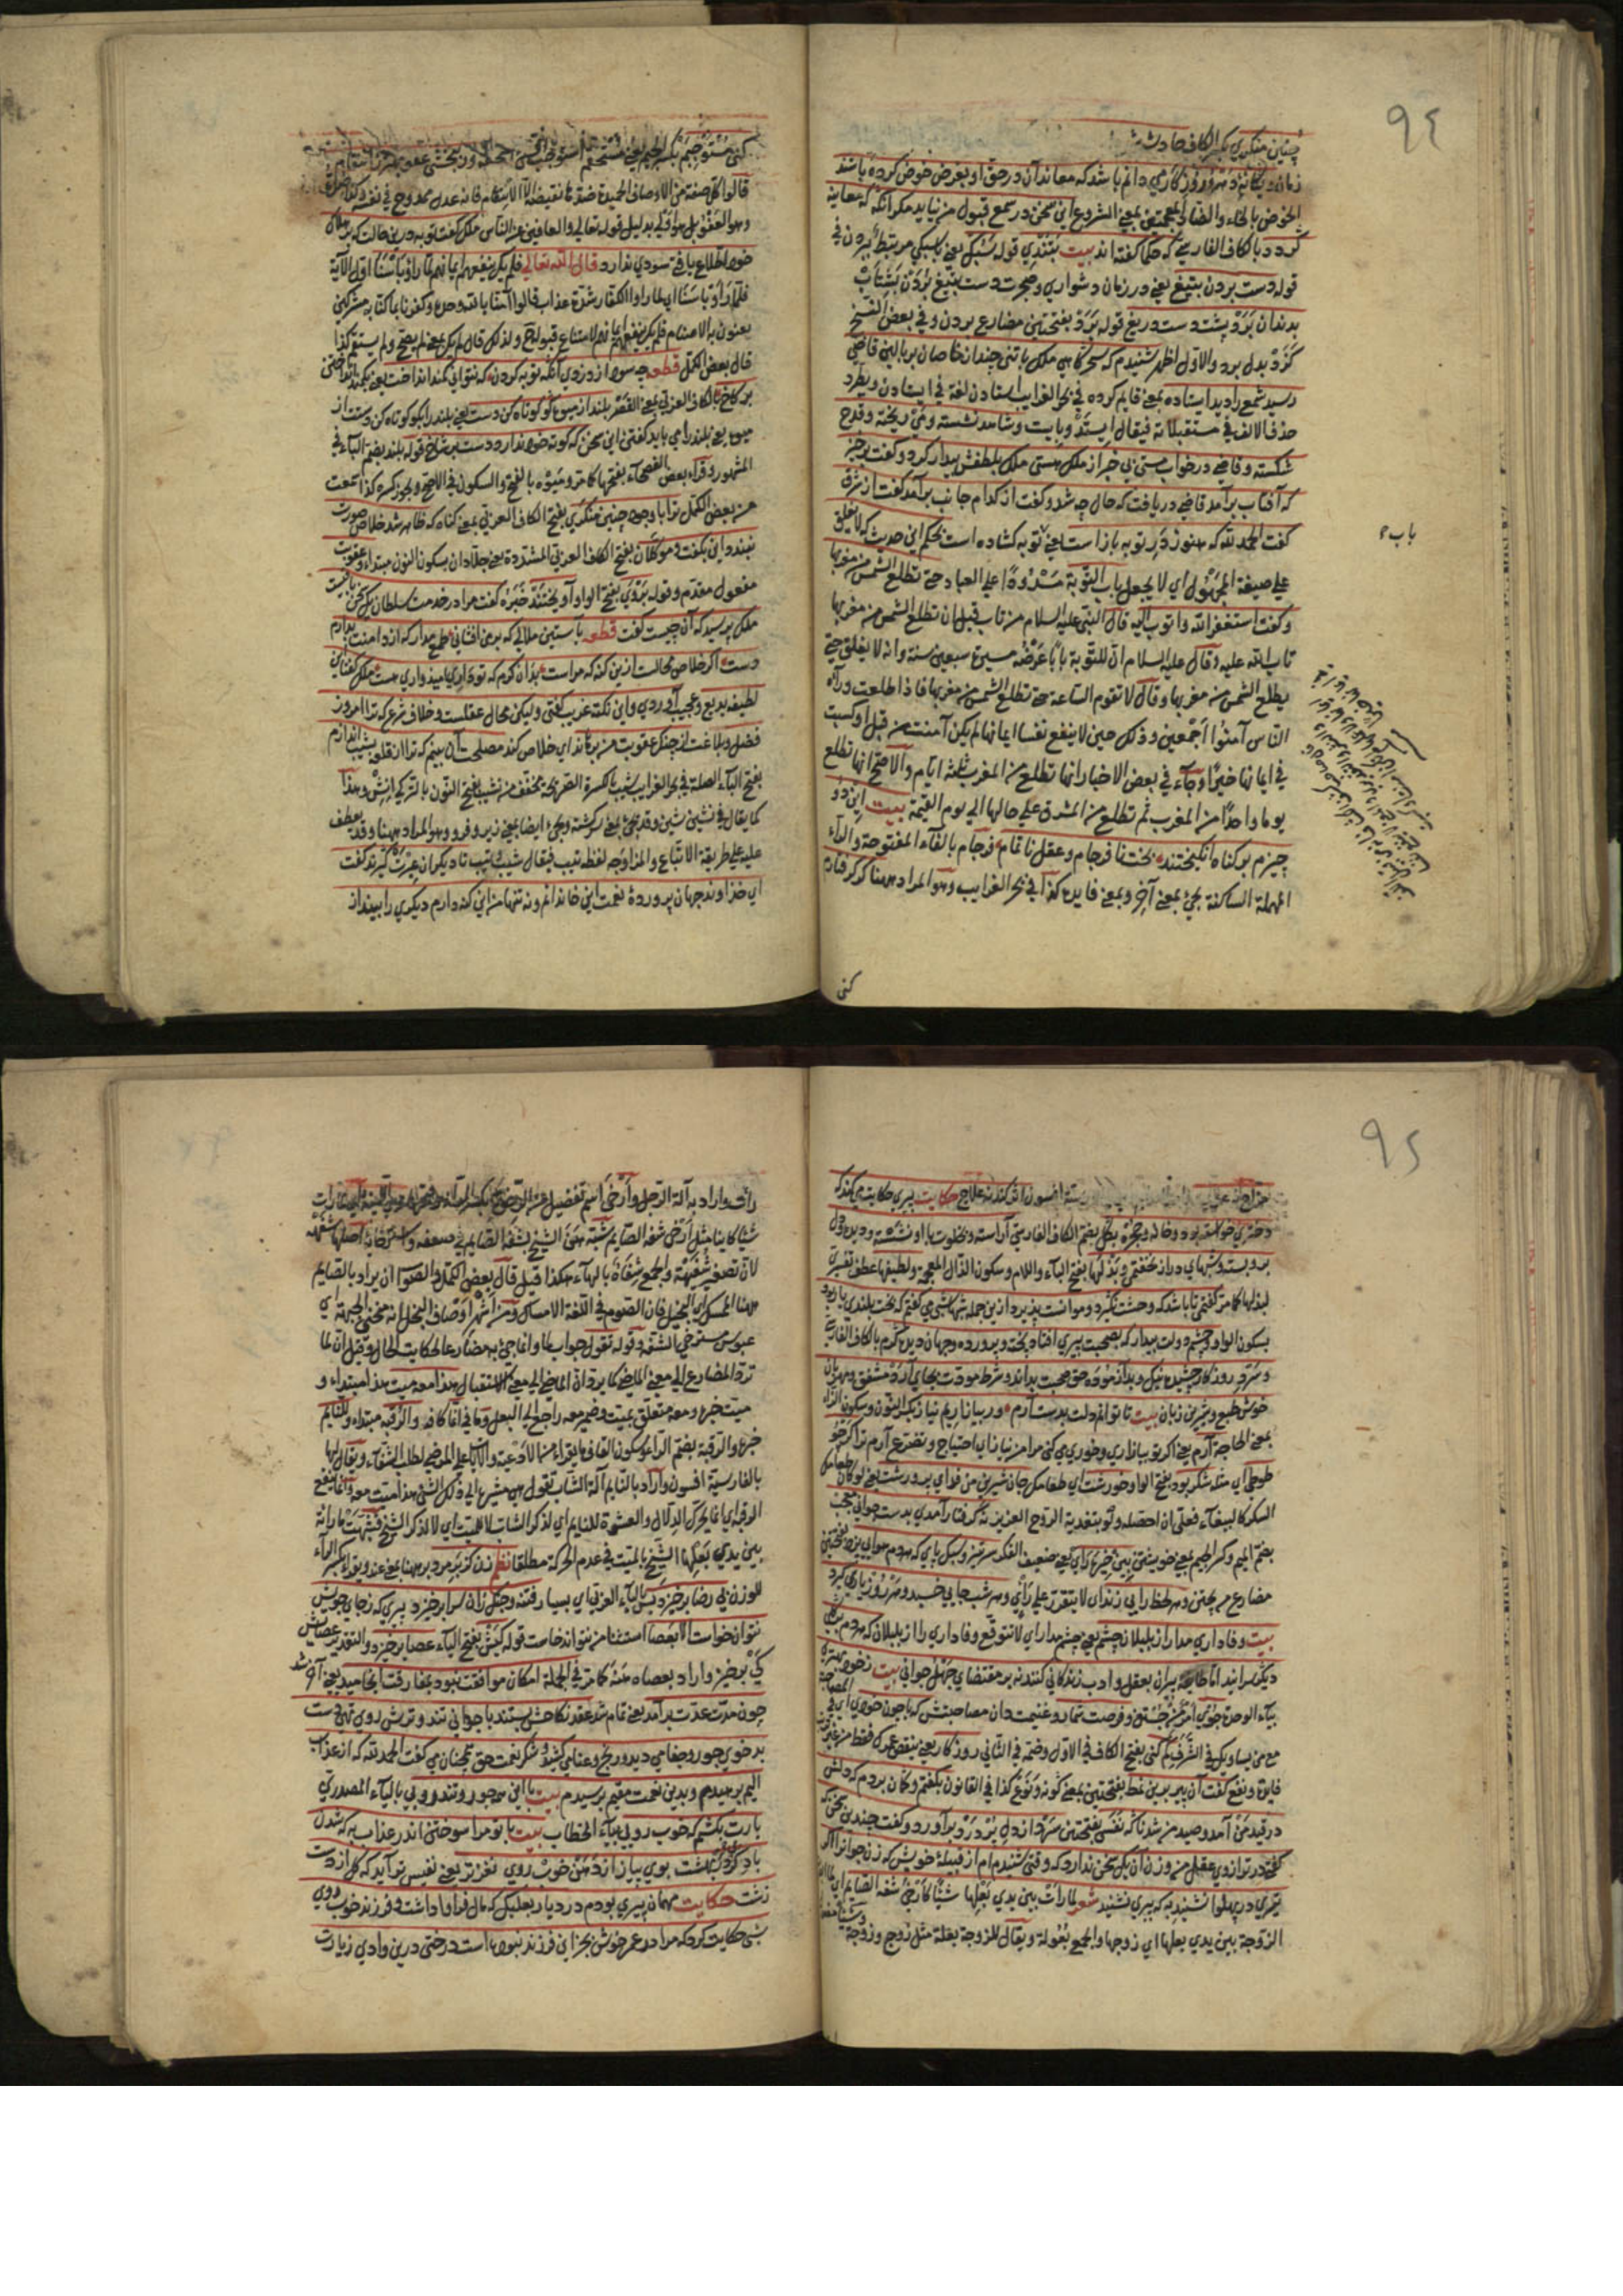 ٩٤
چنین منکری بکسر الکاف حادث شد
زمان و یکانهٔ دهر و روزکار می دانم باشد که معاندان در حق او بغرض خوض کرده باشند
الخوض بالخاء والضاد المعجمتین بمعنی الشروع این سخن در سمع قبول من نیاید مکر انکه که معاینه
کردد بالکاف الفارسی که حکما کفته اند بیت بتندی قوله سبک یعنی بسبکی مرتبط ببردن فی
قوله دست بردن بتیغ یعنی در زمان دشواری وضجرت دست بتیغ بردن بشتاب
بدندان برد پشت دست دریغ قوله برد بفتحتین مضارع بردن و فی بعض النسخ
کزد بدل برد والاول اظهر شنیدم که سحرکاهی ملک با تنی چندان خاصان ببالین قاضی
رسید شمع را دید ایستاده بمعنی قایم کرده فی بحر الغرایب استادن لغة فی ایستادن ویطرد
حذف الالف فی مستقبلاته فیقال ایستد و بایست و شاهد نشسته و می ریخته و قدح
شکسته و قاضی در خواب مستی بی خبر از ملک هستی ملک بلطفش بیدار کرد و کفت برخیز
که آفتاب برآمد قاضی دریافت که حال چه شد و کفت از کدام جانب برآمد کفت از شرق
کفت الحمد لله که هنوز در توبه باز است یعنی توبه کشاده است بحکم این حدیث که لا یغلق
علی صیغة المجهول ای لا یجعل باب التوبة مسدودا علی العباد حتی تطلع الشمس من مغربها
و کفت استغفر الله واتوب الیه قال النبی علیه السلام من تاب قبل ان تطلع الشمس من مغربها
تاب الله علیه وقال علیه السلام ان للتوبة بابا عرضه مسیرة سبعین سنة وانه لا یغلق حتی
یطلع الشمس من مغربها وقال لا تقوم الساعة حتی تطلع الشمس من مغربها فاذا طلعت ورآه
الناس آمنوا اجمعین وذلک حین لا ینفع نفسا ایمانها لم یکن آمنت من قبل او کسبت
فی ایمانها خیرا وجآء فی بعض الاخبار انها تطلع من المغرب ثلثة ایام والاصح انها تطلع
یوما واحدا من المغرب ثم تطلع من المشرق علی حالها الی یوم القیمة بیت این دو
چیزم بر کناه انکیختند بخت نا فرجام و عقل نا تمام فرجام بالفاء المفتوحة والراء
المهملة الساکنة یجئ بمعنی آخر وبمعنی فایده کذا فی بحر الغرایب وهو المراد ههنا کر کرفتارم
باب ٥
کنی
کنی مستوجبم بکسر الجیم یعنی مستحقم
قالوا کل صفة من الاوصاف الحمیدة ضدها نقیضه الا الانتقام فانه عدل ممدوح فی نفسه
وهو العفو بل هو اولی بدلیل قوله تعالی والعافین عن الناس ملک کفت توبه درین حالت که بر هلاک
خود اطلاع یافتی سودی ندارد قال الله تعالی فلم یک ینفعهم ایمانهم لما رأوا بأسنا اول الآیة
فلما رأوا بأسنا ای لما راوا الکفار شدة عذاب قالوا آمنا بالله وحده وکفرنا بما کنا به مشرکین
یعنون به الاصنام فلم یک ینفعهم ایمانهم لامتناع قبوله ح ولذلک قال لم یک بمعنی لم یصح ولم یستقم کذا
قال بعض الکمل قطعه چه سود از دزدی آنکه توبه کردن که نتوانی کمند انداخت یعنی بکمند انداختن
بر کاخ بالکاف العربی بمعنی القصر بلند از میوه کو کوتاه کن دست یعنی بلند را بکو کوتاه کن دستت از
میوه یعنی بلند را می باید کفتن این سخن که کوته خود ندارد دست بر شاخ قوله بلند بضم البآء فی
المشهور و قراء بعض الفصحاء بفتحها کما مر ومیوه بالفتح والسکون فی الاصح ویجوز کسره کذا سمعت
من بعض الکمل ترا با وجود چنین منکری بفتح الکاف العربی بمعنی کناه که ظاهر شد خلاص صورت
نبندد این بکفت و موکلان بفتح الکاف العربی المشددة یعنی جلادان بسکون النون مبتداء و عقوبت
مفعول مقدم وقوله بروی بفتح الواو آویختند خبره کفت مرا در خدمت سلطان یک سخن باقیست
ملک پرسید که آن چیست کفت قطعه باستین ملالی که بر من افشانی طمع مدار که از دامنت بدارم
دست اکر خلاص محالست ازین کنه که مراست بدان کرم که تو داری امیدواری هست ملک کفت این
لطیفه بدیع و عجیب آوردی و این نکته غریب کفتی ولیکن محال عقلست و خلاف شرع که ترا امروز
فضل و بلاغت از چنک عقوبت من برهاند ای خلاص کند مصلحت آن بینم که ترا از قلعه بشیب اندازم
بفتح البآء الصلة فی بحر الغرایب شیب بالکسرة الصریحة مخفف من نشیب بفتح النون بالترکی اینش وهذا
کما یقال فی نشین شین وقد یجئ بمعنی سرکشته ویجئ ایضا بمعنی زیر وفرود وهو المراد ههنا وقد یعطف
علیه علی طریقة الاتباع والمزاوجة لفظه تیب فیقال شیب وتیب تا دیکران عبرت کیرند کفت
ای خداوند جهان پروردهٔ نعمت این خاندانم و نه تنها من این کنه دارم دیکری را بینداز
٩٥
افسون اثر کند نه علاج حکایت پیری حکایت می کند که
دختری خواسته بود و حجره بکل بضم الکاف الفارسی آراسته و بخلوت با او نشسته و دیده و دل
برو بسته و شبهای دراز نخفتی و بذلها بفتح البآء واللام وسکون الذال المعجمة ولطیفها عطف تفسیر
لبذلها کما مر کفتی تا باشد که وحشت نکیرد و موانست پذیرد ازین جمله شبها شبی می کفتم که بخت بلندت یار بود
بسکون الواو و چشم دولت بیدار که بصحبت پیری افتادی پخته و پرورده و جهان دیده کرم بالکاف الفارسی
و سرد روزکار چشیده نیک و بد آزموده حق صحبت بداند و شرط مودت بجای آرد مشفق و مهربان
خوش طبع و شیرین زبان بیت تا توانم دلت بدست آرم ور بیازاریم نیازارم
بمعنی الحاجة آرم یعنی اکر تو بیازاری و خوری می کنی مرا من نیاز ای احتیاج و تضرع آرم ترا کر چو
طوطی ای مثله شکر بود بفتح الواو خورشت ای طعامک جان شیرین من فدای پرورشت یعنی لو کان طعامک
السکر کالببغآء فعلی ان احصله ولو بتفدیة الروح العزیز نه کرفتار آمدی بدست جوانی معجب
بضم المیم وکسر الجیم بمعنی خویشتن بین خیره رای یعنی ضعیف الفکر سرتیز و سبک پای که هر دم هوایی پزد بفتحتین
مضارع من پختن و هر لحظه رایی زند ای لا یتقرر علی رای و هر شب جایی خسبد و هر روز یاری کیرد
بیت وفاداری مدار از بلبلان چشم یعنی چشم مدار ای لا تتوقع وفاداری را از بلبلان که هر دم بر کلی
دیکر سرایند اما طائفه پیران بعقل و ادب زندکانی کنند نه بر مقتضای جهل جوانی بیت ز خود بهتری
بیآء الوحدة جوی امر من جستن و فرصت شمار و غنیمت دان مصاحبتش که با چون خودی ای فی المصاحبة
مع من یساویک فی الشرف کم کنی بفتح الکاف فی الاول وضمه فی الثانی روزکار یعنی ینقص عمرک فقط من غیر
فایدة ونفع کفت آن پیر برین نمط بفتحتین بمعنی کونه و نوع کذا فی القانون بکفتم و کمان بردم که دلش
در قید من آمد و صید من شد ناکه نفسی بفتحتین سرد از دل پر درد برآورد و کفت چندین سخن که
کفتی در ترازوی عقل من وزن آن یک سخن ندارد که وقتی شنیدم از قبیلهٔ خویش که زن جوانرا اکر
تیری در پهلو نشیند به که پیری نشیند شعر لما رأت بین یدی بعلها شیئا کارخی شفة الصایم ای لما رأت
الزوجة بین یدی بعلها ای زوجها والجمع بعولة ویقال للزوجة بعلة مثل زوج وزوجة
رأت واراد به آلة الرجل وارخی اسم تفضیل من الرخو
شیئا کاینا مثل ارخی شفة الصایم شبه هن الشیخ بشفة الصایم فی ضعفه واسترخائه اصلها شفهة
لان تصغیرها شفیهة والجمع شفاه بالهآء هکذا قیل قال بعض الکمل والصواب ان یراد بالصایم
ههنا الممسک ای البخیل فان الصوم فی اللغة الامساک ومن اشهر اوصاف البخیل انه منحنی الجبهة ای
عبوس مسترخی الشفة وقوله تقول جواب لما وانما جئ به مضارعا لحکایة الحال وقیل ان لما
ترد المضارع الی معنی الماضی کما یرد ان الماضی الی معنی الاستقبال هذا معه میت هذا مبتداء و
میت خبره ومعه متعلق بمیت وضمیر معه راجع الی البعل وما فی انما کافة والرقیة مبتداء وللنایم
خبره والرقیة بضم الراء وسکون القاف ما یقراء من الادعیة والآیات علی المرضی لطلب الشفآء ویقال لها
بالفارسیة افسون واراد بالنایم آلة الشاب تقول هی مشیرة الی ذلک الشئ هذا میت معه وانما ینفع
الرقیة ای انما یحرک الدلال والعشوة للنایم ای لذکر الشاب لا للمیت ای لا لذکر الشیخ فشبهت ما رأته
بین یدی بعلها الشیخ بالمیت فی عدم الحرکة مطلقا نظم زن کز بر مرد بر ههنا بمعنی عند ویقراء بکسر الراء
للوزن بی رضا برخیزد بس بالبآء العربی ای بسیار فتنه و جنک زان سرا برخیزد پیری که ز جای خویش
نتواند خواست الا بعصا استثنا من نتواند خاست قوله کیش بفتح الیآء عصا برخیزد والتقدیر عصایش
کی برخیزد واراد بعصاه هنه کما مر فی الجملة امکان موافقت نبود بمفارقت انجامید یعنی آخر شد
چون مدت عدت برآمد یعنی تمام شد عقد نکاحش بستند با جوانی تند و ترش روی تهی دست
بد خوی جور و جفا می دید و رنج و عنا می کشید و شکر نعمت حق همچنان می کفت الحمد لله که از عذاب
الیم برهیدم و بدین نعمت مقیم برسیدم بیت با این همه جور و تندرویی بالیآء المصدری
بارت بکشم که خوب رویی بیآء الخطاب بیت با تو مرا سوختن اندر عذاب به که شدن
با دکری در بهشت بوی پیاز از دهن خوب روی نغزتر یعنی نفیس تر آید که کل از دست
زشت حکایت مهمان پیری بودم در دیار بعلبک که مال فراوان داشت و فرزند خوب روی
شبی حکایت کرد که مرا در عمر خویش بجز این فرزند نبوده است درختی درین وادی زیارت